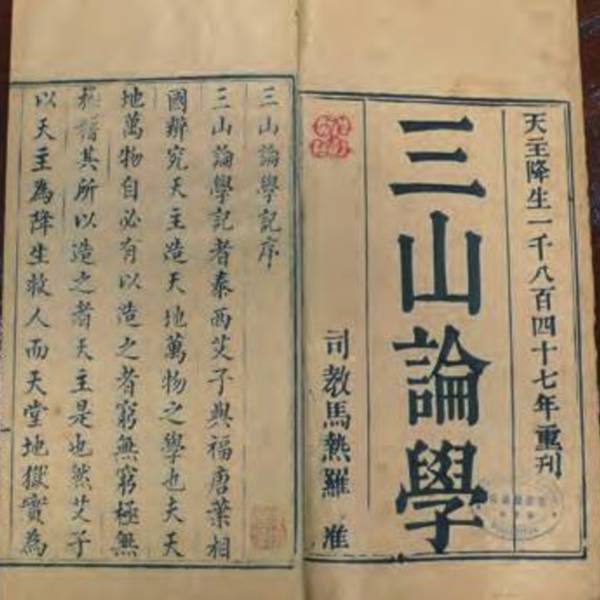 天主降生一千八百四十七年重刊
三山論學
司教馬熱羅 准
三山論學記序
三山論學記者泰西艾子與福唐葉相
國辨究天主造天地萬物之學也夫天
地萬物自必有以造之者窮無窮極無
極詣其所以造之者天主是也然艾子
以天主為降生救人而天堂地獄實為